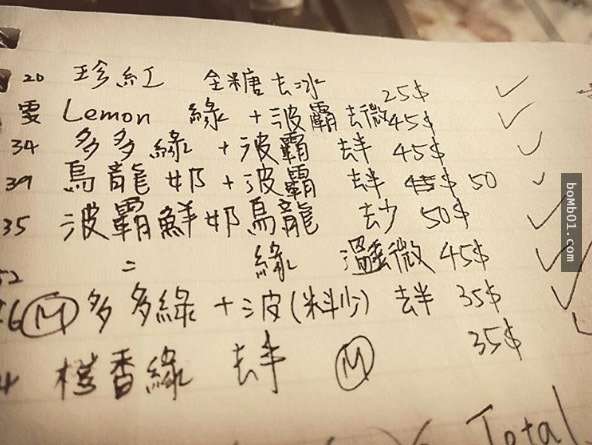 20 珍紅 全糖去冰 25$
雯 Lemon 綠 + 波霸 去微 45$
34 多多綠 + 波霸 去半 45$
39 烏龍奶 + 波霸 去半 45$ 50
35 波霸鮮奶烏龍 去少 50$
52 = 綠 溫微 45$
M 多多綠 + 波(料少) 去半 35$
香綠 去半 M 35$
Total
boMb01.com